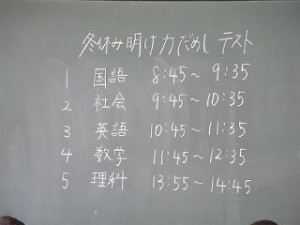 冬休み明け力だめしテスト
1 国語 8:45～9:35
2 社会 9:45～10:35
3 英語 10:45～11:35
4 数学 11:45～12:35
5 理科 13:55～14:45